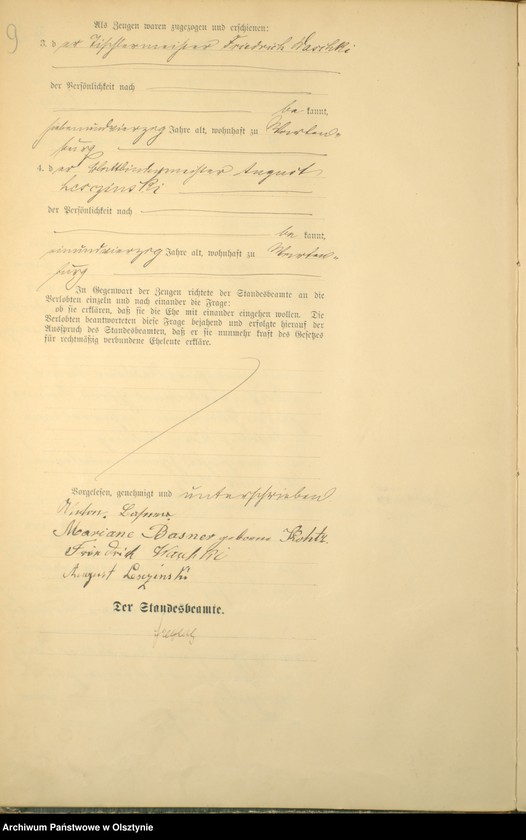 9
Als Zeugen waren zugezogen und erschienen:
3. der Tischlermeister Friedrich Waschki
der Persönlichkeit nach
be kannt,
siebenundvierzig Jahre alt, wohnhaft zu Warten=
burg
4. der August
Lesczinski
der Persönlichkeit nach
be kannt,
einundvierzig Jahre alt, wohnhaft zu Warten=
burg
In Gegenwart der Zeugen richtete der Standesbeamte an die
Verlobten einzeln und nach einander die Frage:
ob sie erklären, daß sie die Ehe mit einander eingehen wollen. Die
Verlobten beantworteten diese Frage bejahend und erfolgte hierauf der
Ausspruch des Standesbeamten, daß er sie nunmehr kraft des Gesetzes
für rechtmäßig verbundene Eheleute erkläre.
Vorgelesen, genehmigt und unterschrieben
Anton
Mariane Basner geborene
Friedrich Waschki
August Lesczinski
Der Standesbeamte.
Archiwum Państwowe w Olsztynie